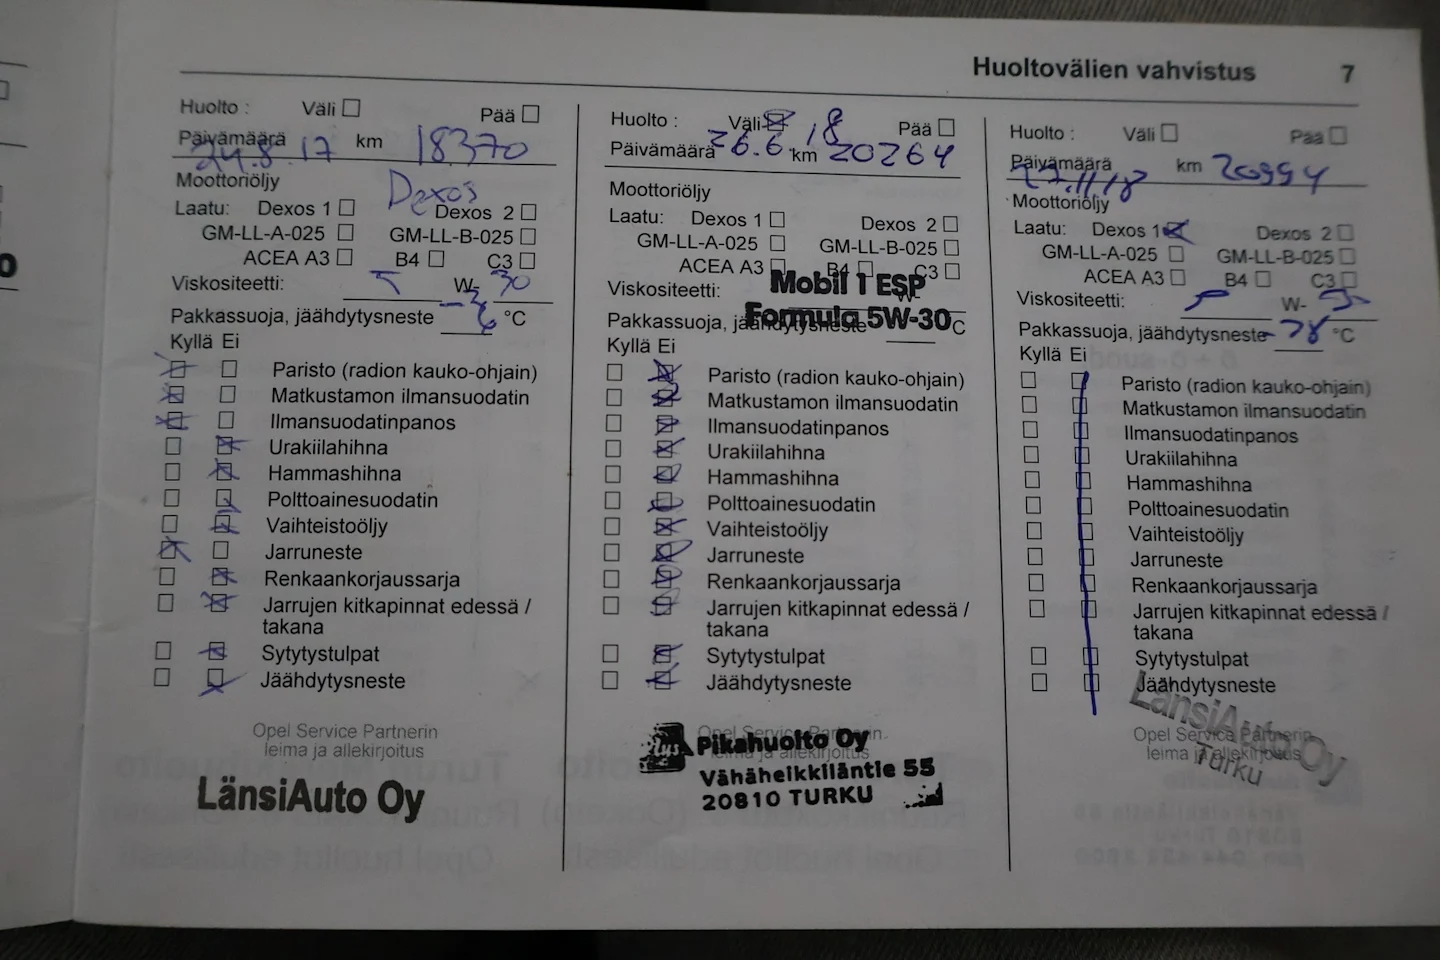 Huoltovälien vahvistus 7
Huolto : Väli Pää
Päivämäärä 24.8.17 km 18370
Moottoriöljy Dexos
Laatu: Dexos 1 Dexos 2
GM-LL-A-025 GM-LL-B-025
ACEA A3 B4 C3
Viskositeetti: 5 W- 30
Pakkassuoja, jäähdytysneste -36 °C
Kyllä Ei
Paristo (radion kauko-ohjain)
Matkustamon ilmansuodatin
Ilmansuodatinpanos
Urakiilahihna
Hammashihna
Polttoainesuodatin
Vaihteistoöljy
Jarruneste
Renkaankorjaussarja
Jarrujen kitkapinnat edessä /
takana
Sytytystulpat
Jäähdytysneste
Opel Service Partnerin
leima ja allekirjoitus
LänsiAuto Oy
Huolto : Väli Pää
Päivämäärä 26.6.18 km 20264
Moottoriöljy
Laatu: Dexos 1 Dexos 2
GM-LL-A-025 GM-LL-B-025
ACEA A3 B4 C3
Mobil 1 ESP
Viskositeetti: W-
Formula 5W-30
Pakkassuoja, jäähdytysneste °C
Kyllä Ei
Paristo (radion kauko-ohjain)
Matkustamon ilmansuodatin
Ilmansuodatinpanos
Urakiilahihna
Hammashihna
Polttoainesuodatin
Vaihteistoöljy
Jarruneste
Renkaankorjaussarja
Jarrujen kitkapinnat edessä /
takana
Sytytystulpat
Jäähdytysneste
Opel Service Partnerin
leima ja allekirjoitus
Pikahuolto Oy
Vähäheikkiläntie 55
20810 TURKU
Huolto : Väli Pää
Päivämäärä 27.11.18 km 20994
Moottoriöljy
Laatu: Dexos 1 Dexos 2
GM-LL-A-025 GM-LL-B-025
ACEA A3 B4 C3
Viskositeetti: 5 W- 30
Pakkassuoja, jäähdytysneste -38 °C
Kyllä Ei
Paristo (radion kauko-ohjain)
Matkustamon ilmansuodatin
Ilmansuodatinpanos
Urakiilahihna
Hammashihna
Polttoainesuodatin
Vaihteistoöljy
Jarruneste
Renkaankorjaussarja
Jarrujen kitkapinnat edessä /
takana
Sytytystulpat
Jäähdytysneste
Opel Service Partnerin
leima ja allekirjoitus
LänsiAuto Oy
Turku